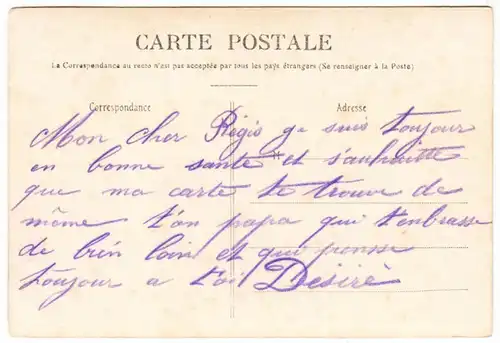 CARTE POSTALE
La Correspondance au recto n'est pas acceptée par tous les pays étrangers (Se renseigner à la Poste)
Correspondance Adresse
Mon cher Régis ge suis toujour
en bonne santé et s'auhaitte
que ma carte te trouve de
même t'on papa qui t'enbrasse
de bien loin et qui pensse
toujour a toi Désiré